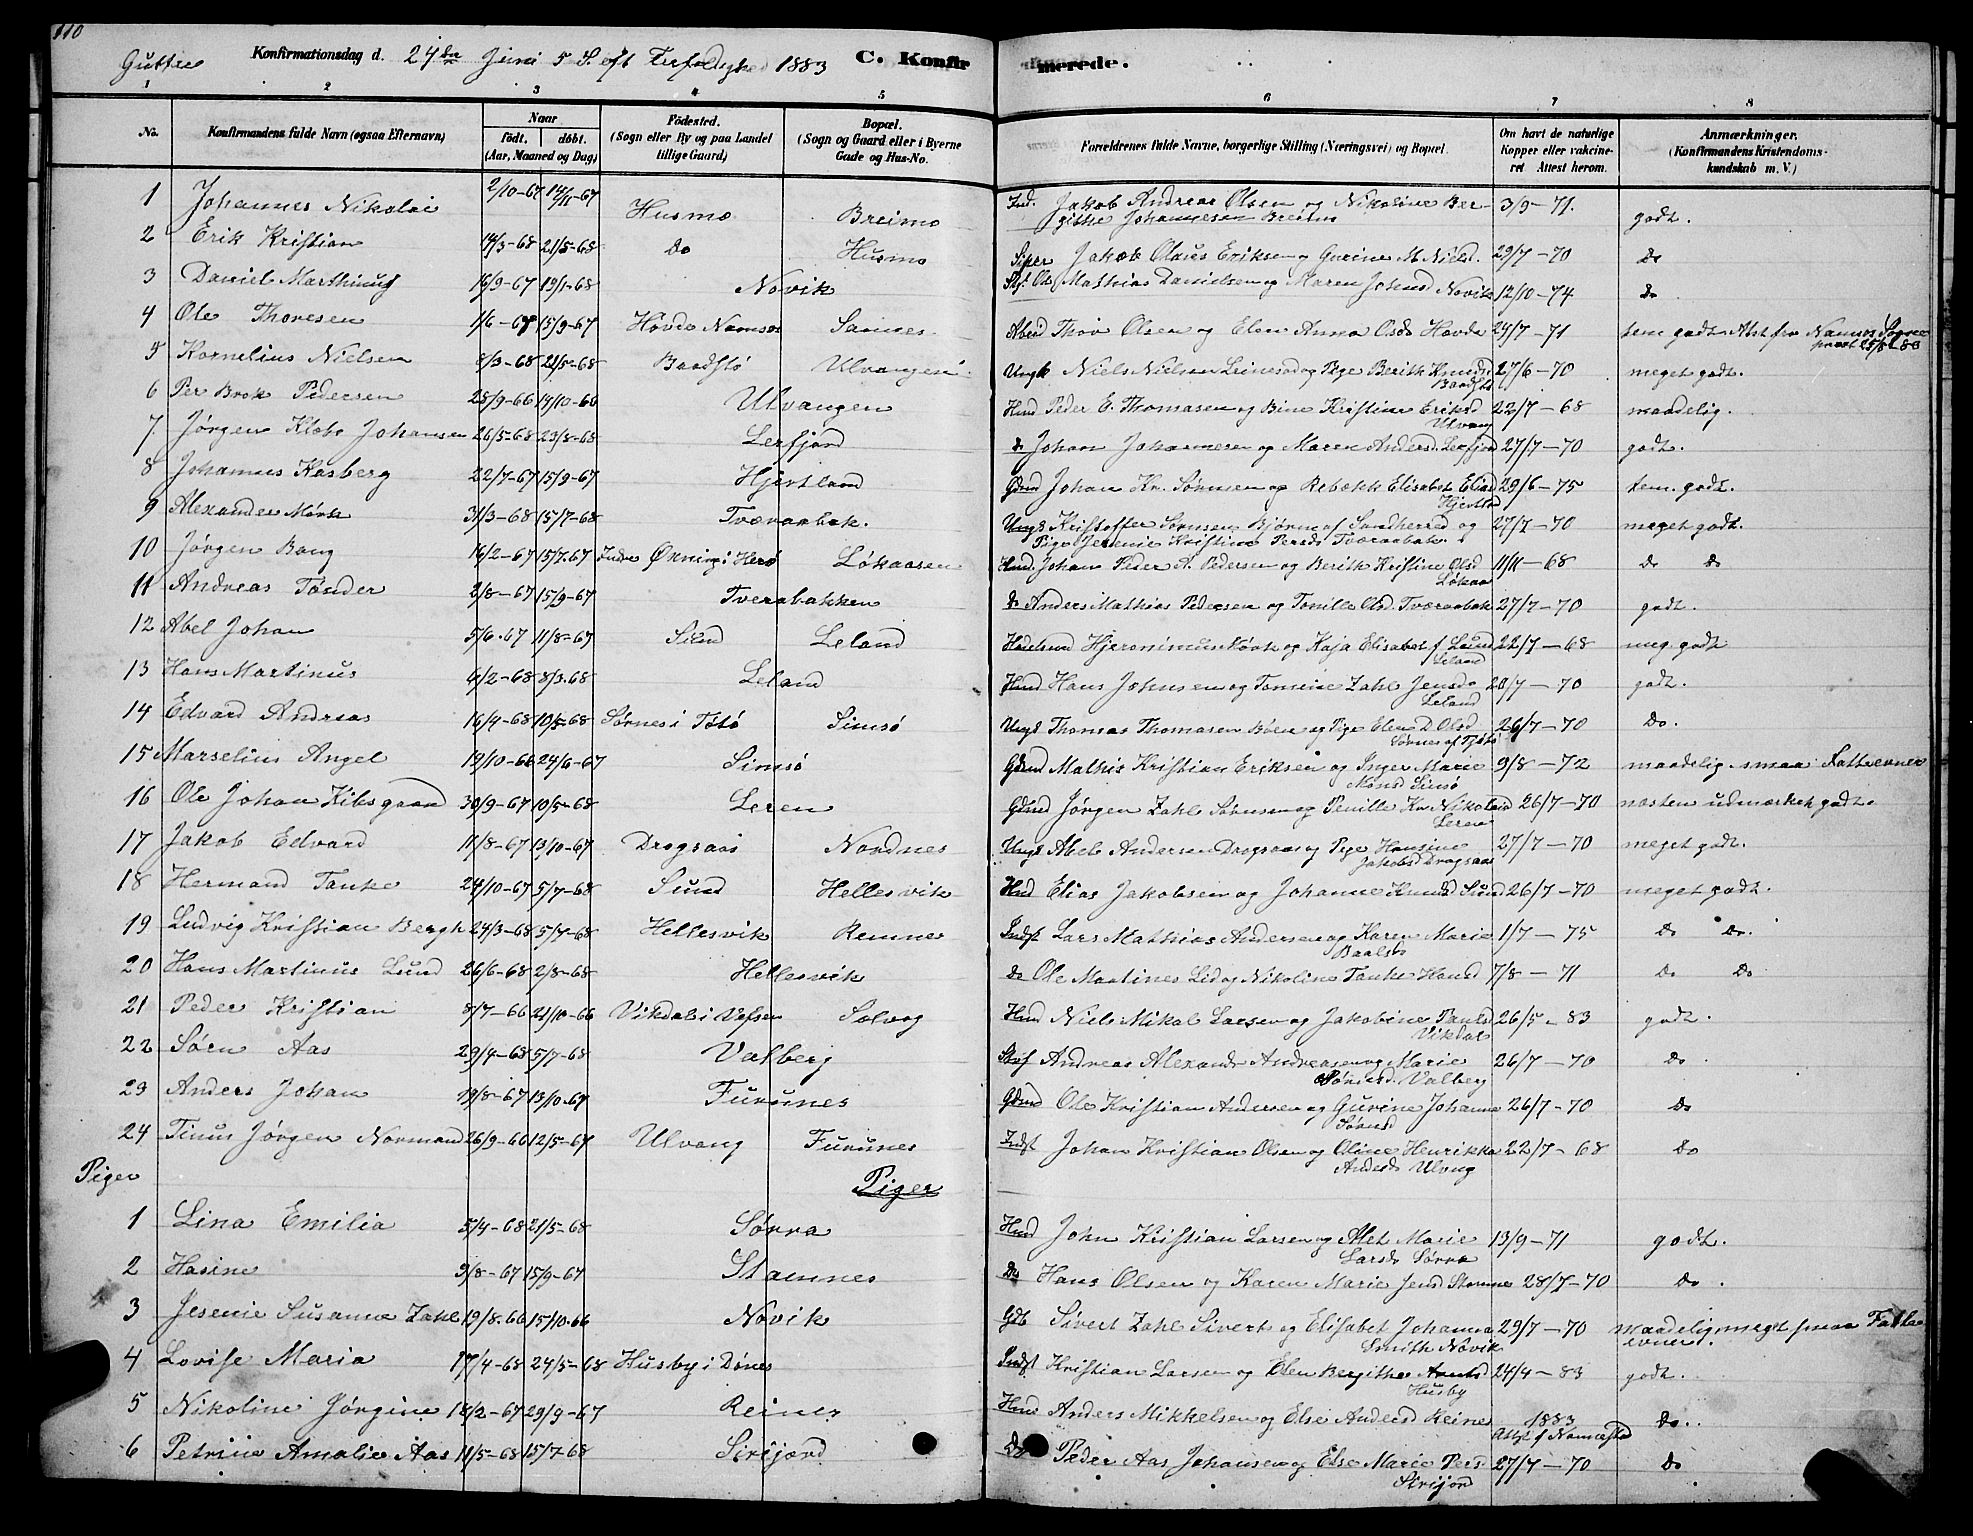 110
Gutter Konfirmationsdag d. 24de Juni 5 S. eft Trefoldighed 1883 C. Konfirmerede.
1 2 3 4 5 6 7 8
No. Konfirmandens fulde Navn (ogsaa Efternavn) Naar født. døbt. (Aar, Maaned og Dag) Fødested. (Sogn eller By og paa Landet tillige Gaard) Bopæl. (Sogn og Gaard eller i Byerne Gade og Hus-No. Forældrenes fulde Navne, borgerlige Stilling (Næringsvei) og Bopæl. Om havt de naturlige Kopper eller vakcineret Attest herom. Anmærkninger, (Konfirmandens Kristendomskundskab m. V.)
1 Johannes Nikolai 2/10-67 14/11-67 Husmo Breimo Ind. Jakob Andreas Olsen og Nikoline Bergithe Johannesen Breimo 3/9-71. godt.
2 Erik Kristian 14/3-68 21/5-68 Do Husmo Jakob Olaus Eriksen og Gurine M. Nielsd. 29/7-70 Do
3 Daniel Marthinus 16/9-67 19/1-68 Novik Mathias Danielsen og Maren Johnsd Novik 12/10-74 Do
4 Ole Thoresen 1/6-67 15/9-67 Hovde Namsos Sannes Abeid Thor Olsen og Elen Anna Olsd Hovde 24/7-71 tem godt. Atst fra Namsos Sogneprest
5 Kornelius Nielsen 8/3-68 21/5-68 Baadstø Ulvangen Ungk Niels Nielsen Leinesod og Pige Berith Knudsd Baadstø 27/6-70 meget godt.
6 Per Brok Pedersen 25/9-66 14/10-66 Ulvangen Hmd Peder E. Thomasen og Bine Kristine Eriksd Ulvang 22/7-68 maadelig.
7 Jørgen Klæbo Johansen 26/5-68 23/8-68 Lerfjord do Johan Johannesen og Maren Andersd. Lerfjord 27/7-70 godt.
8 Johannes Kasberg 22/7-67 15/9-67 Hjertland Gdmd Johan Kr. Sørensen og Rebekk Elisabet Eliasd Hjertla 29/6-75 tem. godt.
9 Alexander Mørk 31/3-68 15/7-68 Tværaabak. Ungk Kristoffer Sørensen Bjørn af Sandherred og Pige Jesenie Kristine Persd. Tværaabak. 27/7-70 meget godt.
10 Jørgen Bang 16/2-67 15/7.67 Indre Økning i Herø Løkaasen Hmd. Johan Peder A. Pedersen og Berith Kristine Olsd Løkaas 11/11-68 Do Do
11 Andreas Tønder 2/8-67 15/9-67 Tverabakken do Anders Mathias Pedersen og Tomille Olsd. Tværaabak 27/7-70 godt.
12 Abel Johan 5/6.67 11/8-67 Leland Hjeronimus Kørk og Kaja Elisabet f. Lund Leland 22/7-68 meg. godt
13 Hans Martinus 4/2-68 8/3.68 Leland Hmd Hans Johnsen og Zahl Jensd. Leland 20/7-70 godt.
14 Edvard Andreas 16/4-68 10/5-68 Sørnes i Tøtø Simsø Ungk Thomas Thomasen Bøen og Pige Elen D Olsd Sørnes af Tjøtø 26/7-70 Do.
15 Marselius Angel 19/10-66 24/6-67 Simsø Gdmd Mathis Kristian Eriksen og Inger Marie Monsd Simsø 9/8-72 maadelig smaa Fatteevner
16 Ole Johan Kibsgaard 30/9-67 10/5-68 Leren Gdmd Jørgen Zahl Sørensen og Penille Kr. Nikolaisd Leren 26/7-70 næsten udmærket godt.
17 Jakob Edvard 11/8-67 13/10-67 Dragsaas Nordnes Ungk Abel Andersen Dragsaas og Pige Hansine Jakobsd Dragsaas 27/7-70 meget godt.
18 Hermand Tanke 24/10-67 5/7-68 Sund Hellesvik Hmd Elias Jakobsen og Johanne Knudsd Sund 26/7-70 meget godt.
19 Ludvig Kristian Bergh 24/3-68 5/7-68 Hellesvik Remnes Indst Lars Mathias Andersen og Karen Marie Baalsd 1/7-75 Do Do.
20 Hans Martinus Lund 26/6-68 2/8-68 Hellesvik do Ole Martines Lid og Nikoline Tanke Hansd 7/8-71 Do Do
21 Peder Kristian 8/7-66 21/10-66 Vikdal i Vefsen Solvog Hmd Niels Mikal Larsen og Jakobine Paulsd Vikdal 26/5-83 godt.
22 Sørn Aas 29/4-68 5/7-68 Valberg Andreas Alexandr Andreasen og Marie Sørnsd. Valberg 26/7-70 Do
23 Anders Johan 19/8-67 13/10.67 Furunes Gdmd Ole Kristian Andersen og Gurine Johanne Sørnsd 26/7-70 Do
24 Tinus Jørgen Normand 26/9-66 12/5-67 Ulvang Furunes Indst Johan Kristian Olsen og Oline Henrikka Andersd Ulvng 22/7-68 Do
Piger Piger
1 Lina Emilia 5/4-68 21/5-68 Sørra Hmd John Kristian Larsen og Alet Marie Larsd. Sørra 13/9-71 godt.
2 Hasine 3/8-67 15/9-67 Stamnes Do Hans Olsen og Karen Marie Jensd Stamne 28/7-70 Do.
3 Jesenie Susanna Zahl 19/8.66 15/10.66 Novik Gdb Sivert Zahl Sivert og Elisabet Johanna Smith Novik 29/7-70 maadelig meget smaa Fatteevner.
4 Lovise Maria 17/4-68 24/5-68 Husby i Dønes Indst Kristian Larsen og Elen Bergithe Arntsd Husby 24/4-83 godt.
5 Nikoline Jørgine 18/2-67 29/9-67 Reines Hmd Anders Mikkelsen og Else Andersd Reines 1883 Do.
6 Petrine Amalie Aas 11/5-68 15/7-68 Strijord Do Peder Aas Johansen og Else Marie Persd Strijor 27/7-70 Do